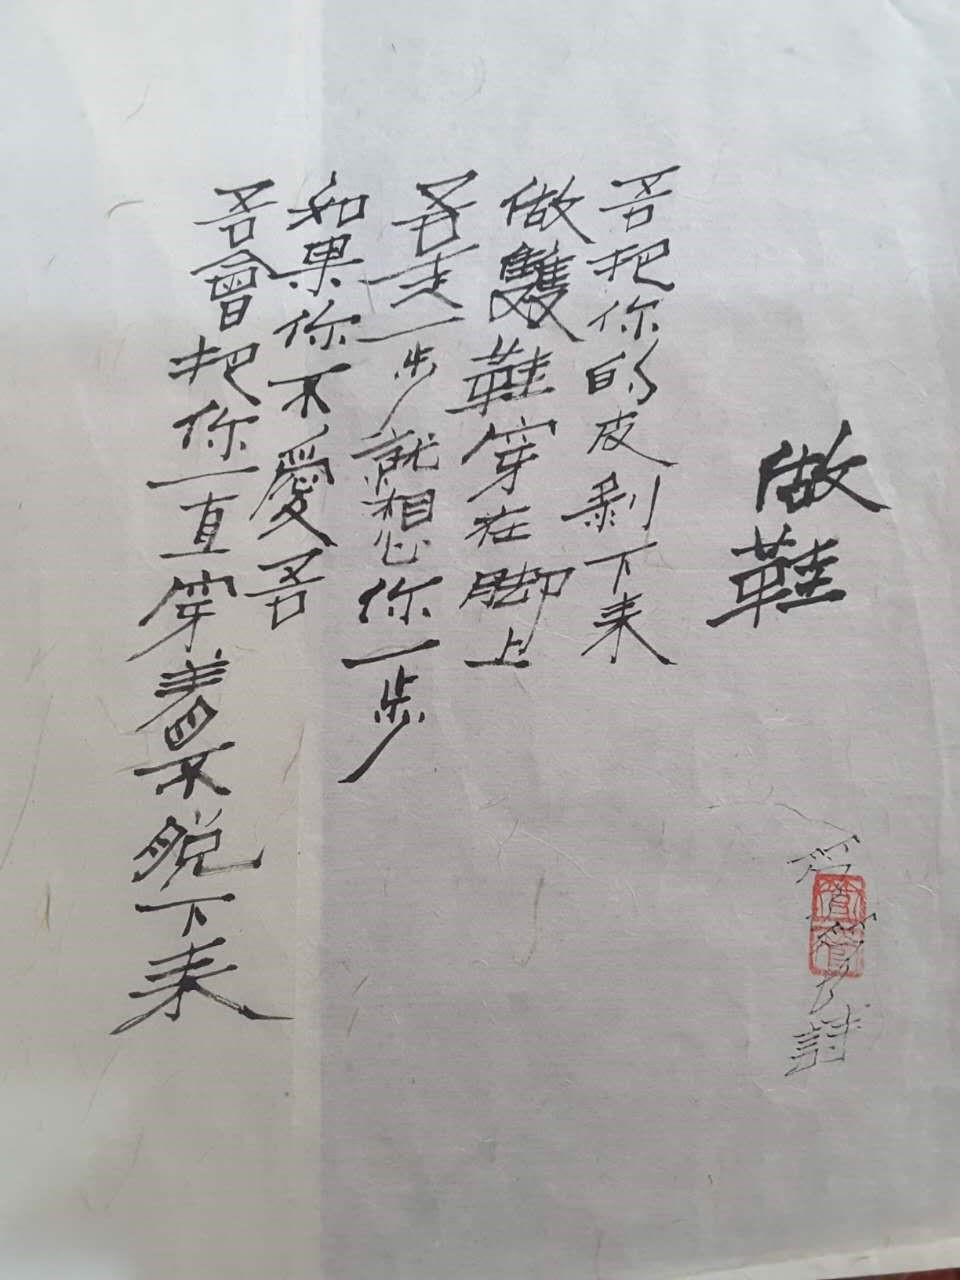 做鞋
管管
詩
吾把你的皮剥下来
做雙鞋穿在脚上
吾走一步就想你一步
如果你不愛吾
吾會把你一直穿着不脱下来